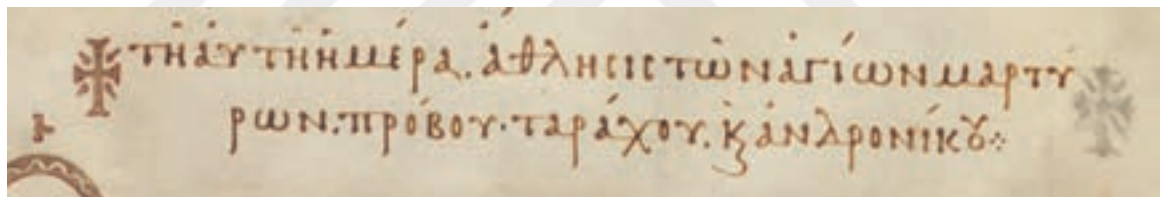 τῆ αὐτῆ ἡμέρα. ἄθλησις τῶν ἁγίων μαρτύ
ρων. πρόβου· ταράχου. κ̀ ἀνδρονίκȣ⁘